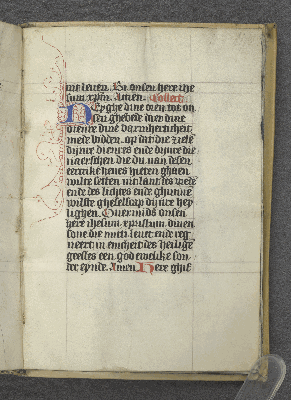 int leven. En onsen here ihe
sum xpm. Amen. Collect
Neyghe dine oren tot on
sen ghebede daer wi dine
dine ontfarmherticheit
mede bidden. op dat du die ziele
dijnre dienres ende dijnre die
naerschen die du van desen
ertrike heves hieten gaen
wilte setten int lant des vrede
ende des lichtes ende ghinne
wilste gheselscap dijnre hey
lighen. Ouermids onsen
here ihesum xpristum dinen
sone die mitti leuet ende reg
neert in enicheit des heilige
geestes een god ewelike son
der eynde. Amen Here ghif